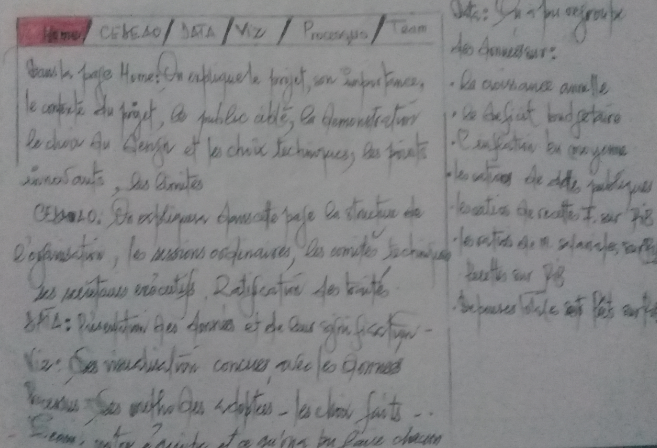 Home / CEDEAO / DATA / Viz / Processus / Team
Dans la page Home: On explique le projet, son importance,
le contexte du projet, le public cible, la démonstration
le choix du design et le choix techniques, les points
innovants, les limites
CEDEAO: On expliquera dans cette page la structure de
l'organisation, les sessions ordinaires, les comités techniques
les secrétaires exécutifs, Ratification des traités
DATA: Présentation des données et de leur signification -
Viz: Les visualisation conçues avec les données
Processus: Les méthodes adoptées - les choix faits - ..
Team, notre équipe et ce qu'on pu faire chacun
Data: On a pu regrouper
des données sur:
. La croissance annuelle
. Le déficit budgétaire
. L'inflation en moyenne
. les ratios de dette publiques
. les ratios de recettes F. sur PIB
. les ratios de m. salariales sur
recettes sur PIB
. Dépenses Totale et Prêt